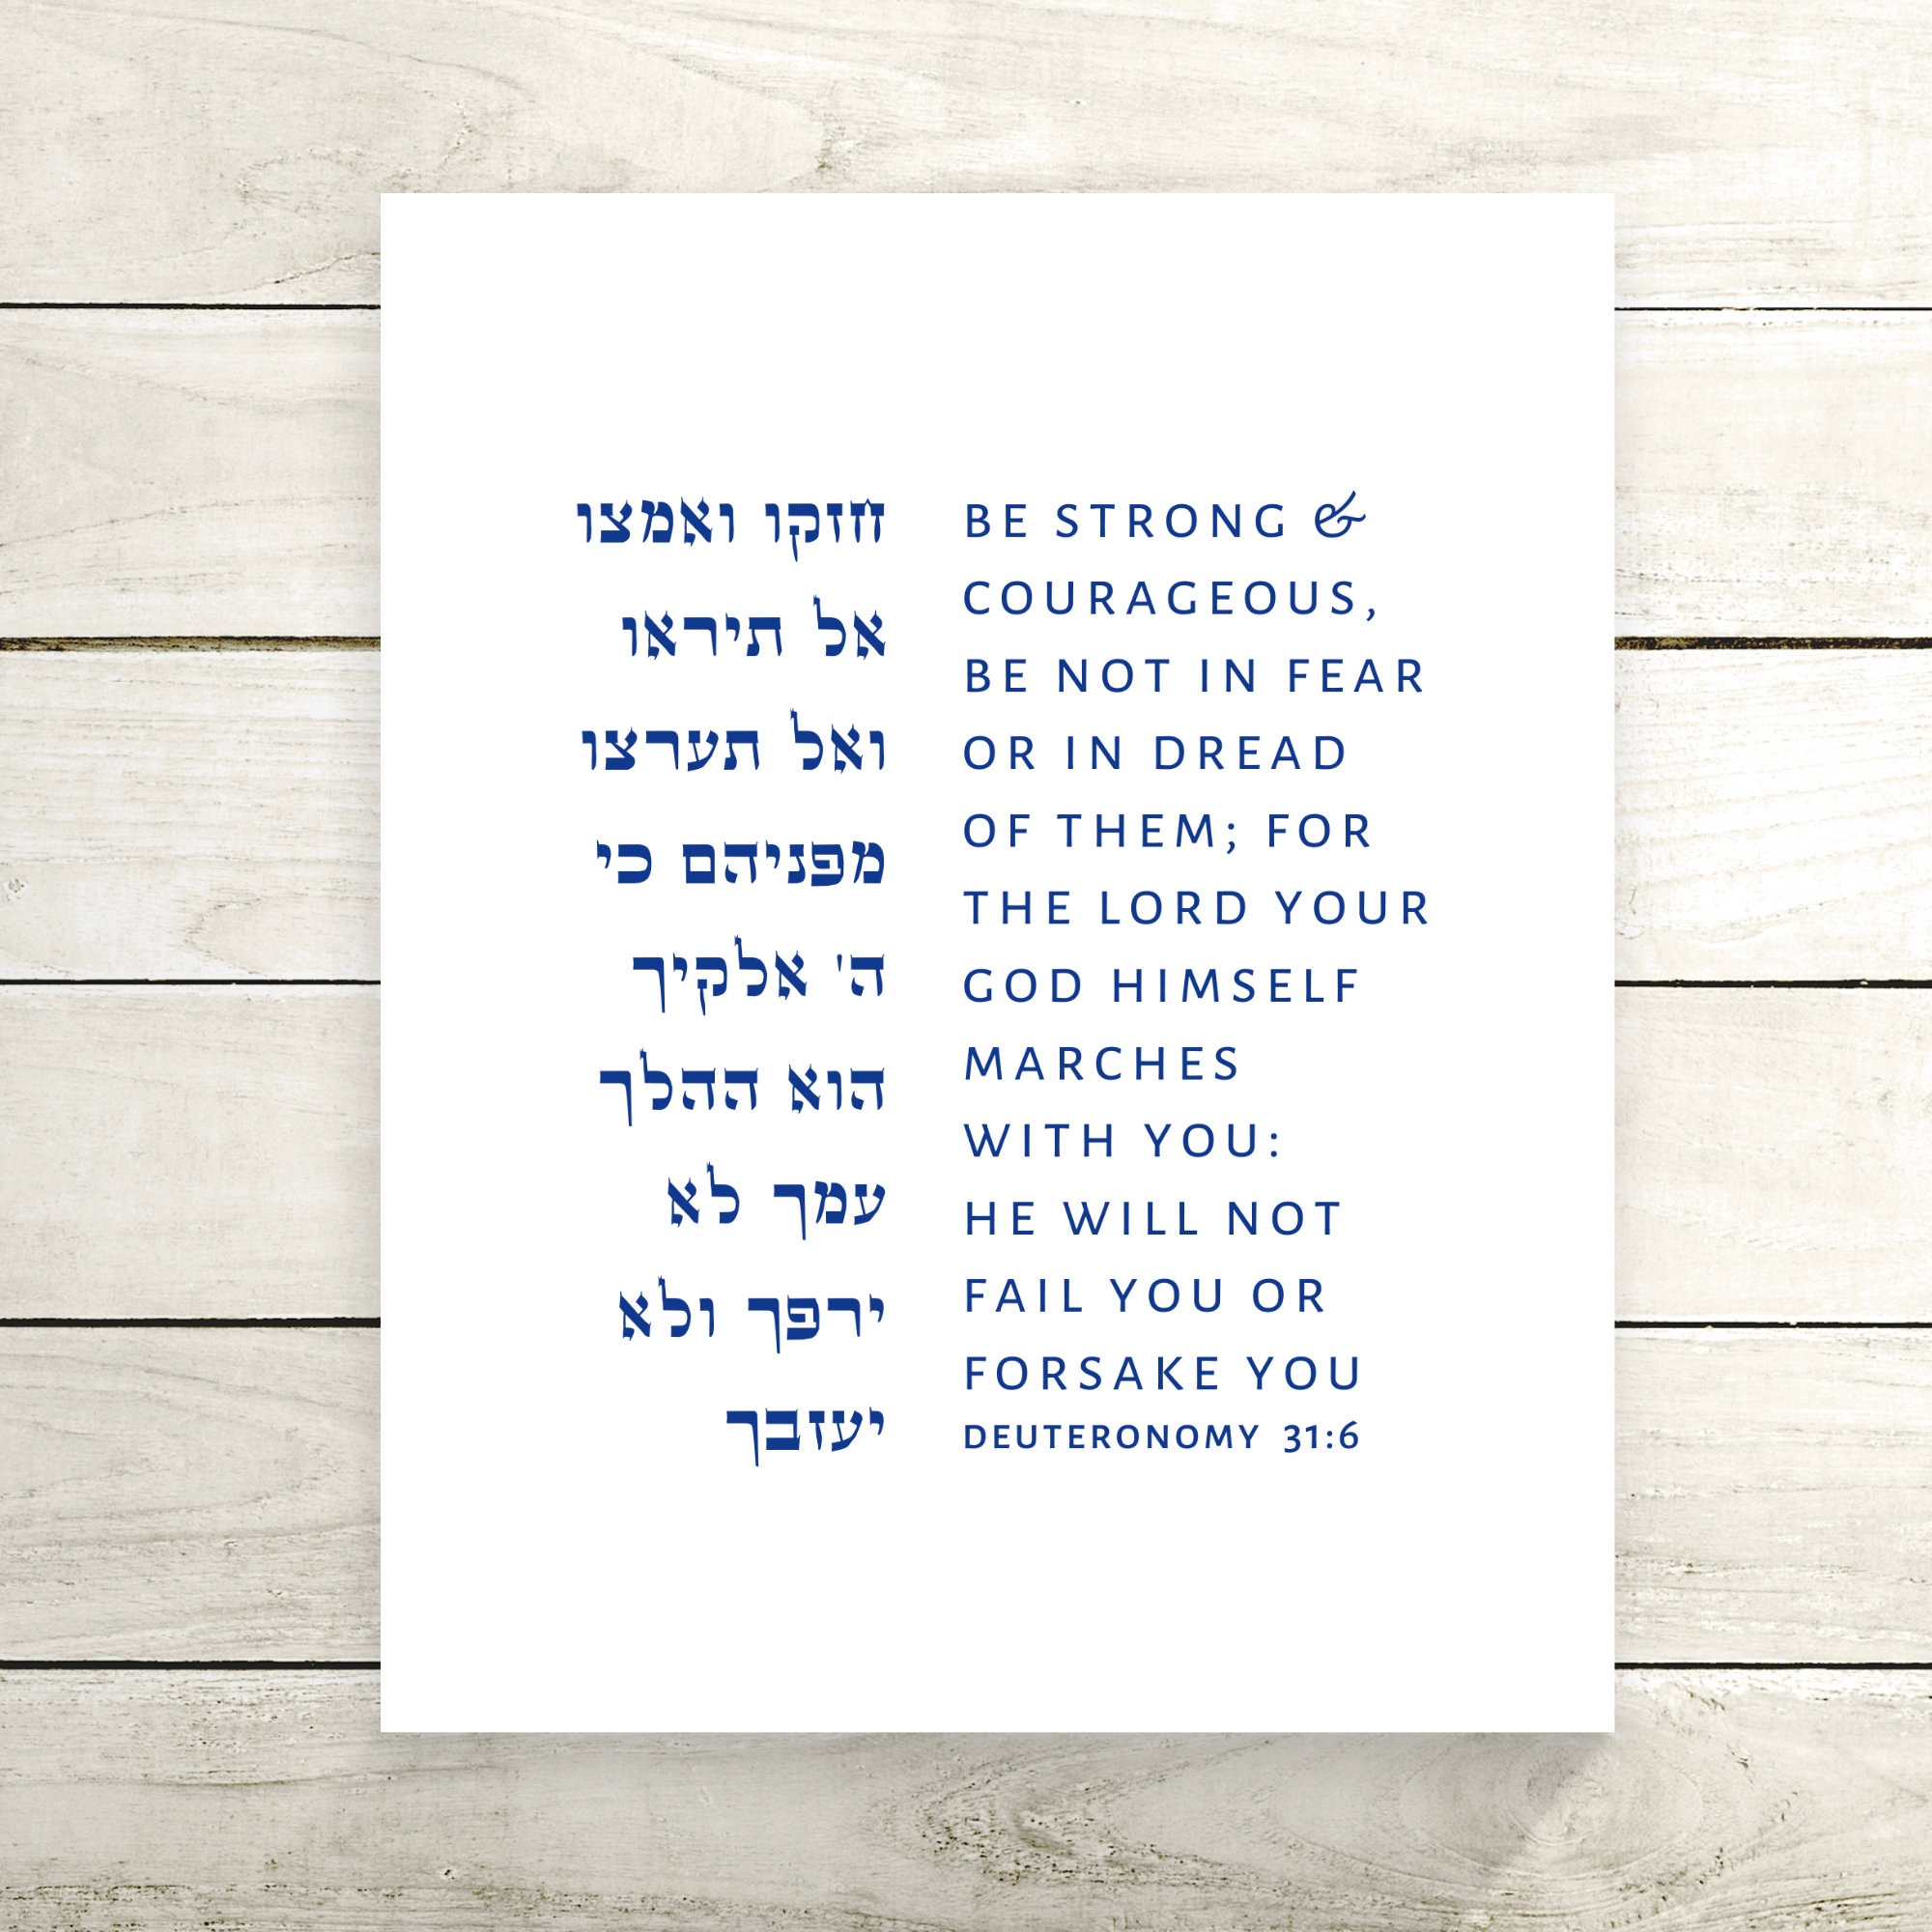 חזקו ואמצו
אל תיראו
ואל תערצו
מפניהם כי
ה' אלקיך
הוא ההלך
עמך לא
ירפך ולא
יעזבך
BE STRONG &
COURAGEOUS,
BE NOT IN FEAR
OR IN DREAD
OF THEM; FOR
THE LORD YOUR
GOD HIMSELF
MARCHES
WITH YOU:
HE WILL NOT
FAIL YOU OR
FORSAKE YOU
DEUTERONOMY 31:6